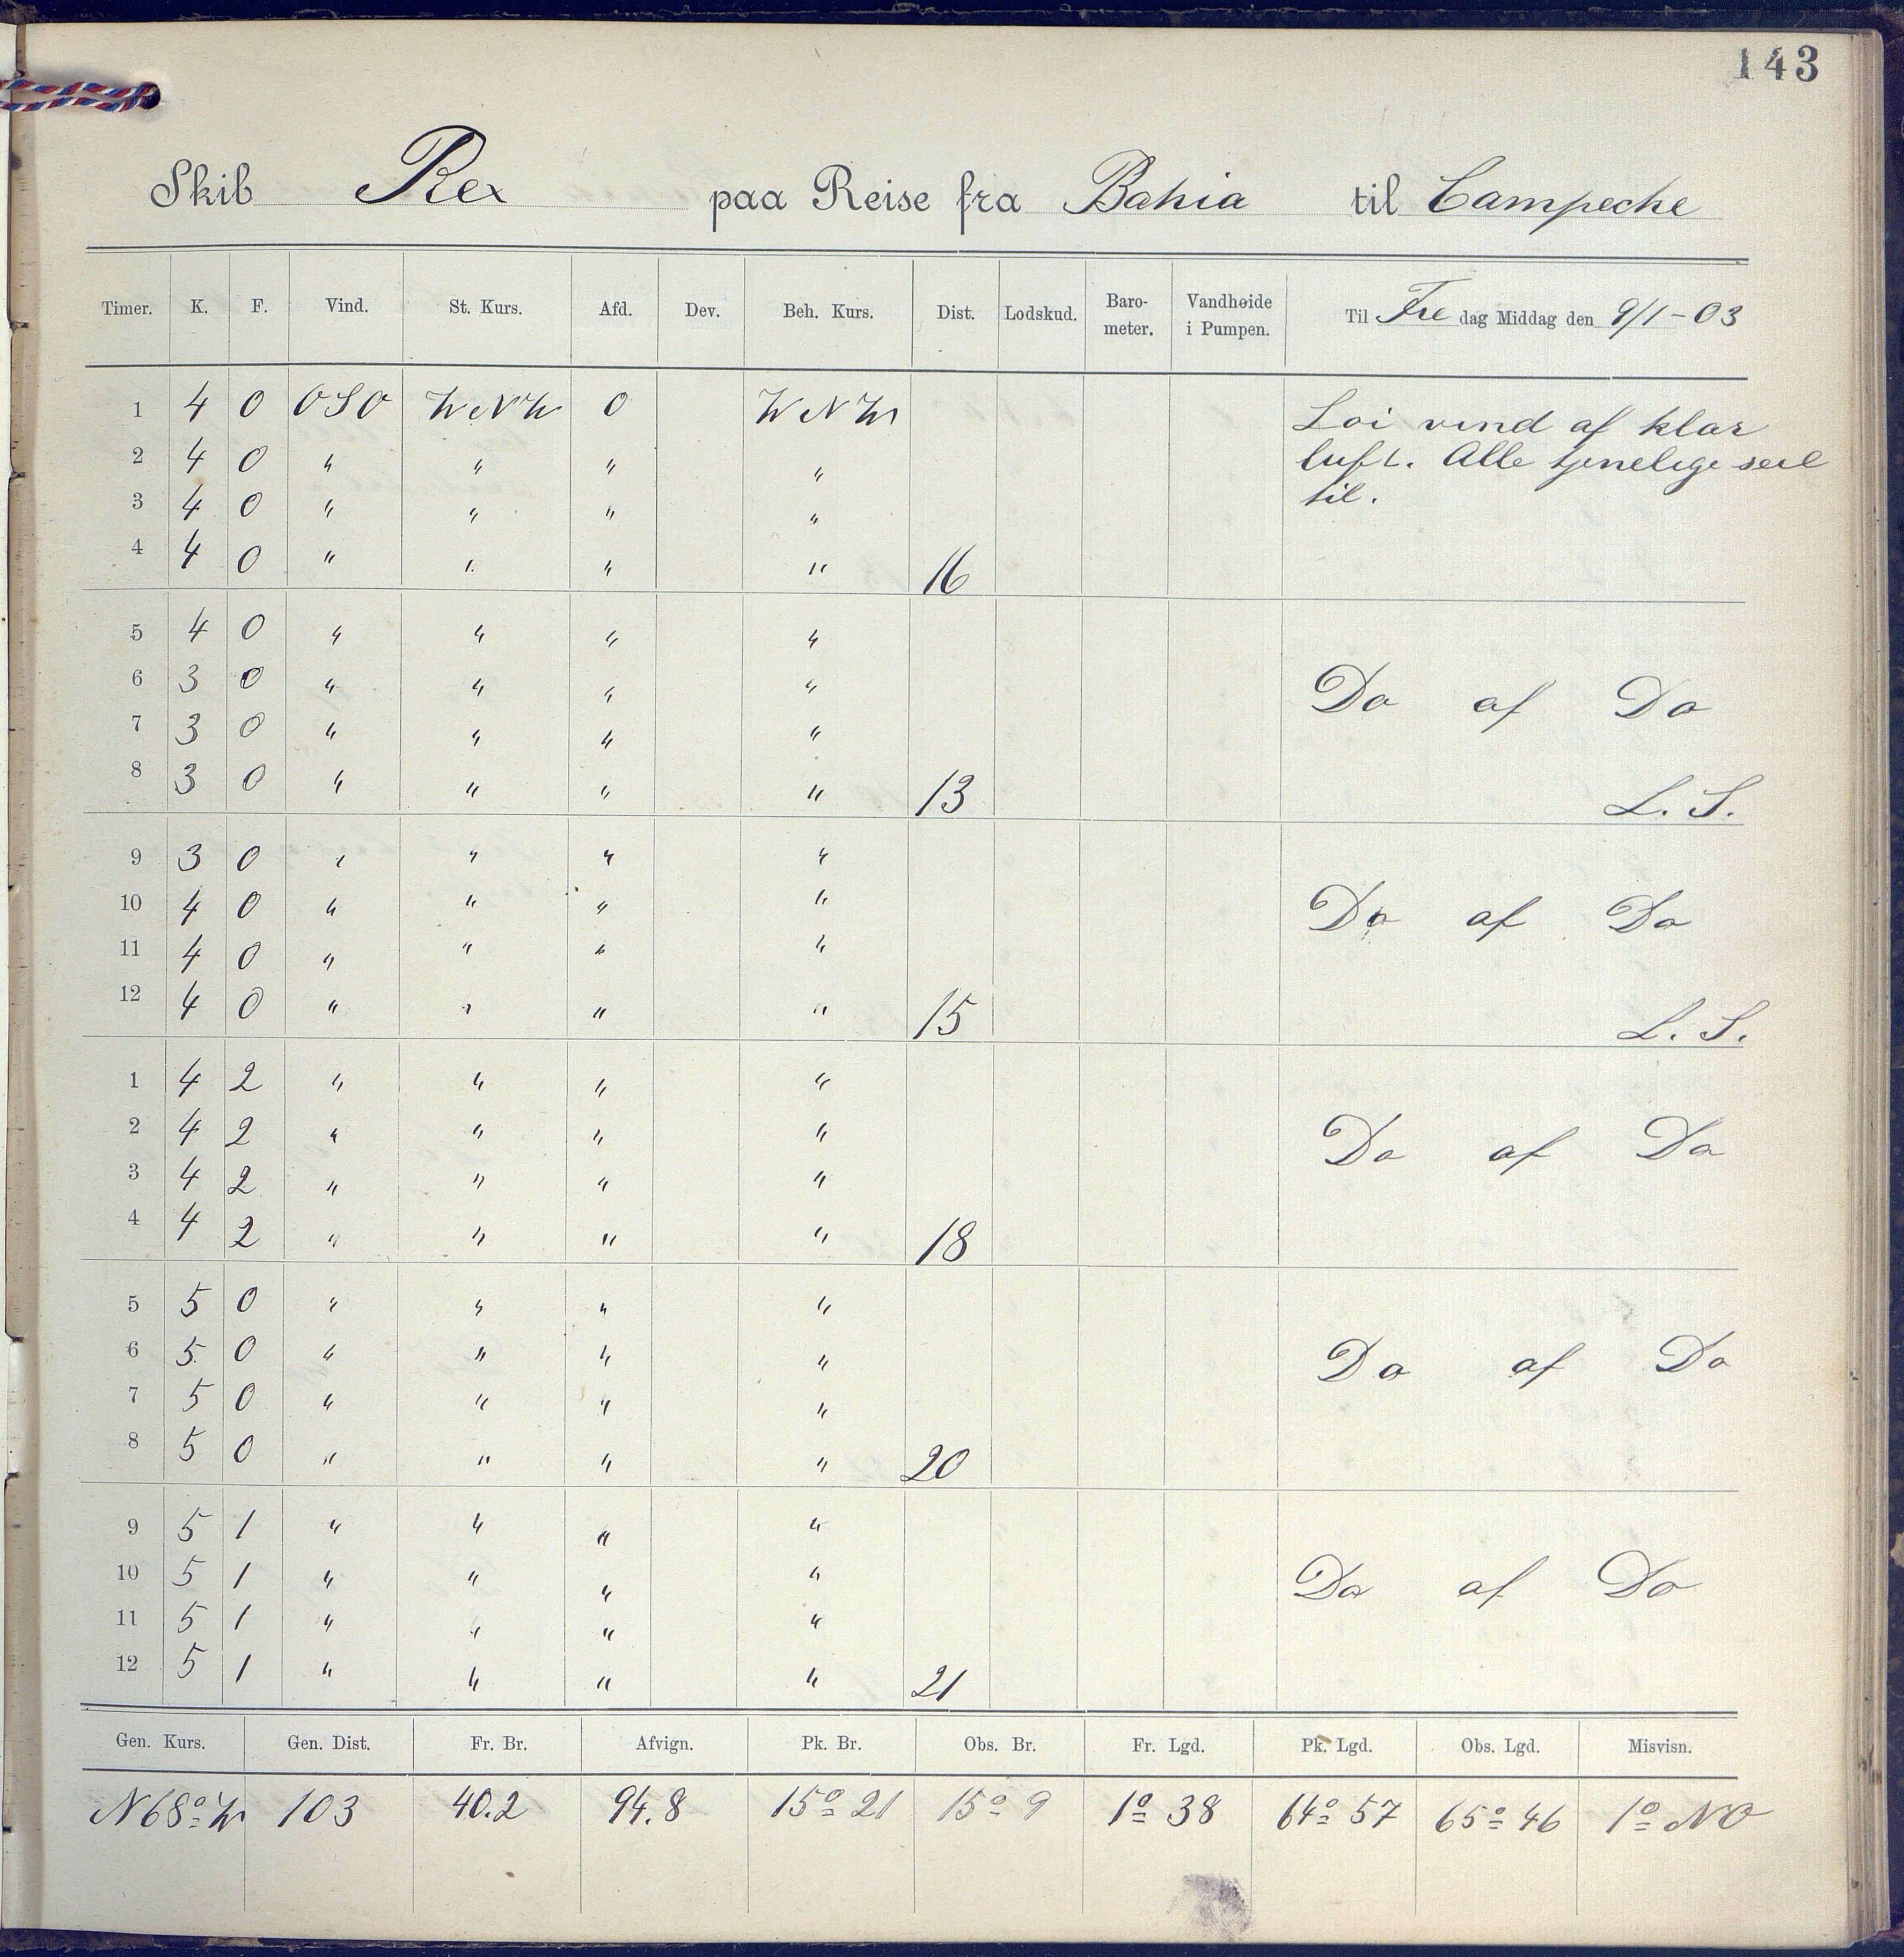 143
Skib Rex paa Reise fra Bahia til Campeche
Timer. K. F. Vind. St. Kurs. Afd. Dev. Beh. Kurs. Dist. Lodskud. Baro-meter. Vandhøide i Pumpen. Til Fre dag Middag den 9/1-03
1 4 0 OSO WNW 0 WNW Loi vind af klar
2 4 0 " " " " luft. Alle tjenelige seil
3 4 0 " " " " til.
4 4 0 " " " " 16
5 4 0 " " " "
6 3 0 " " " " Do af Do
7 3 0 " " " "
8 3 0 " " " " 13 L. S.
9 3 0 " " " "
10 4 0 " " " " Do af Do
11 4 0 " " " "
12 4 0 " " " " 15 L. S.
1 4 2 " " " "
2 4 2 " " " " Do af Do
3 4 2 " " " "
4 4 2 " " " " 18
5 5 0 " " " "
6 5 0 " " " " Do af Do
7 5 0 " " " "
8 5 0 " " " " 20
9 5 1 " " " "
10 5 1 " " " " Do af Do
11 5 1 " " " "
12 5 1 " " " " 21
Gen. Kurs. Gen. Dist. Fr. Br. Afvign. Pk. Br. Obs. Br. Fr. Lgd. Pk. Lgd. Obs. Lgd. Misvisn.
N68°W 103 40.2 94.8 15° 21 15° 9 1° 38 64° 57 65° 46 1° NO